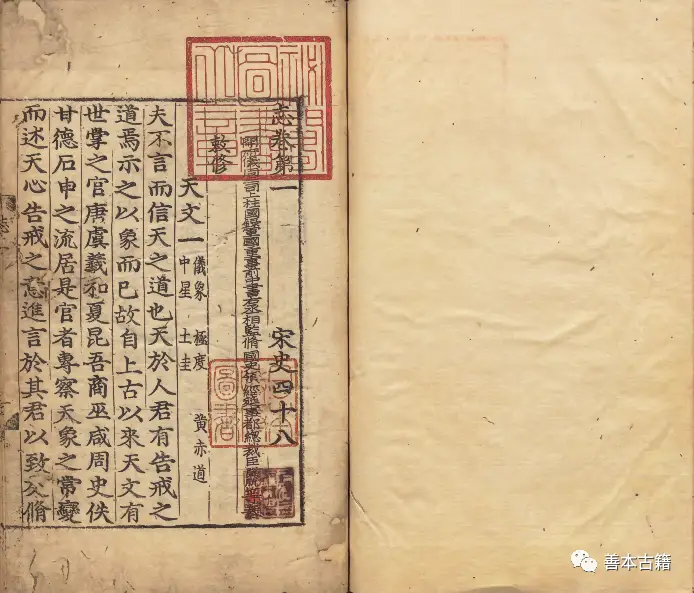 志卷第一 宋史四十八
開府儀同三司上柱國錄軍國重事前中書右丞相監脩國史領經筵事都總裁臣脫脫等奉
敕修
天文一 儀象 極度 黃赤道
中星 土圭
夫不言而信天之道也天於人君有告戒之
道焉示之以象而已故自上古以來天文有
世掌之官唐虞羲和夏昆吾商巫咸周史佚
甘德石申之流居是官者專察天象之常變
而述天心告戒之意進言於其君以致交脩
善本古籍